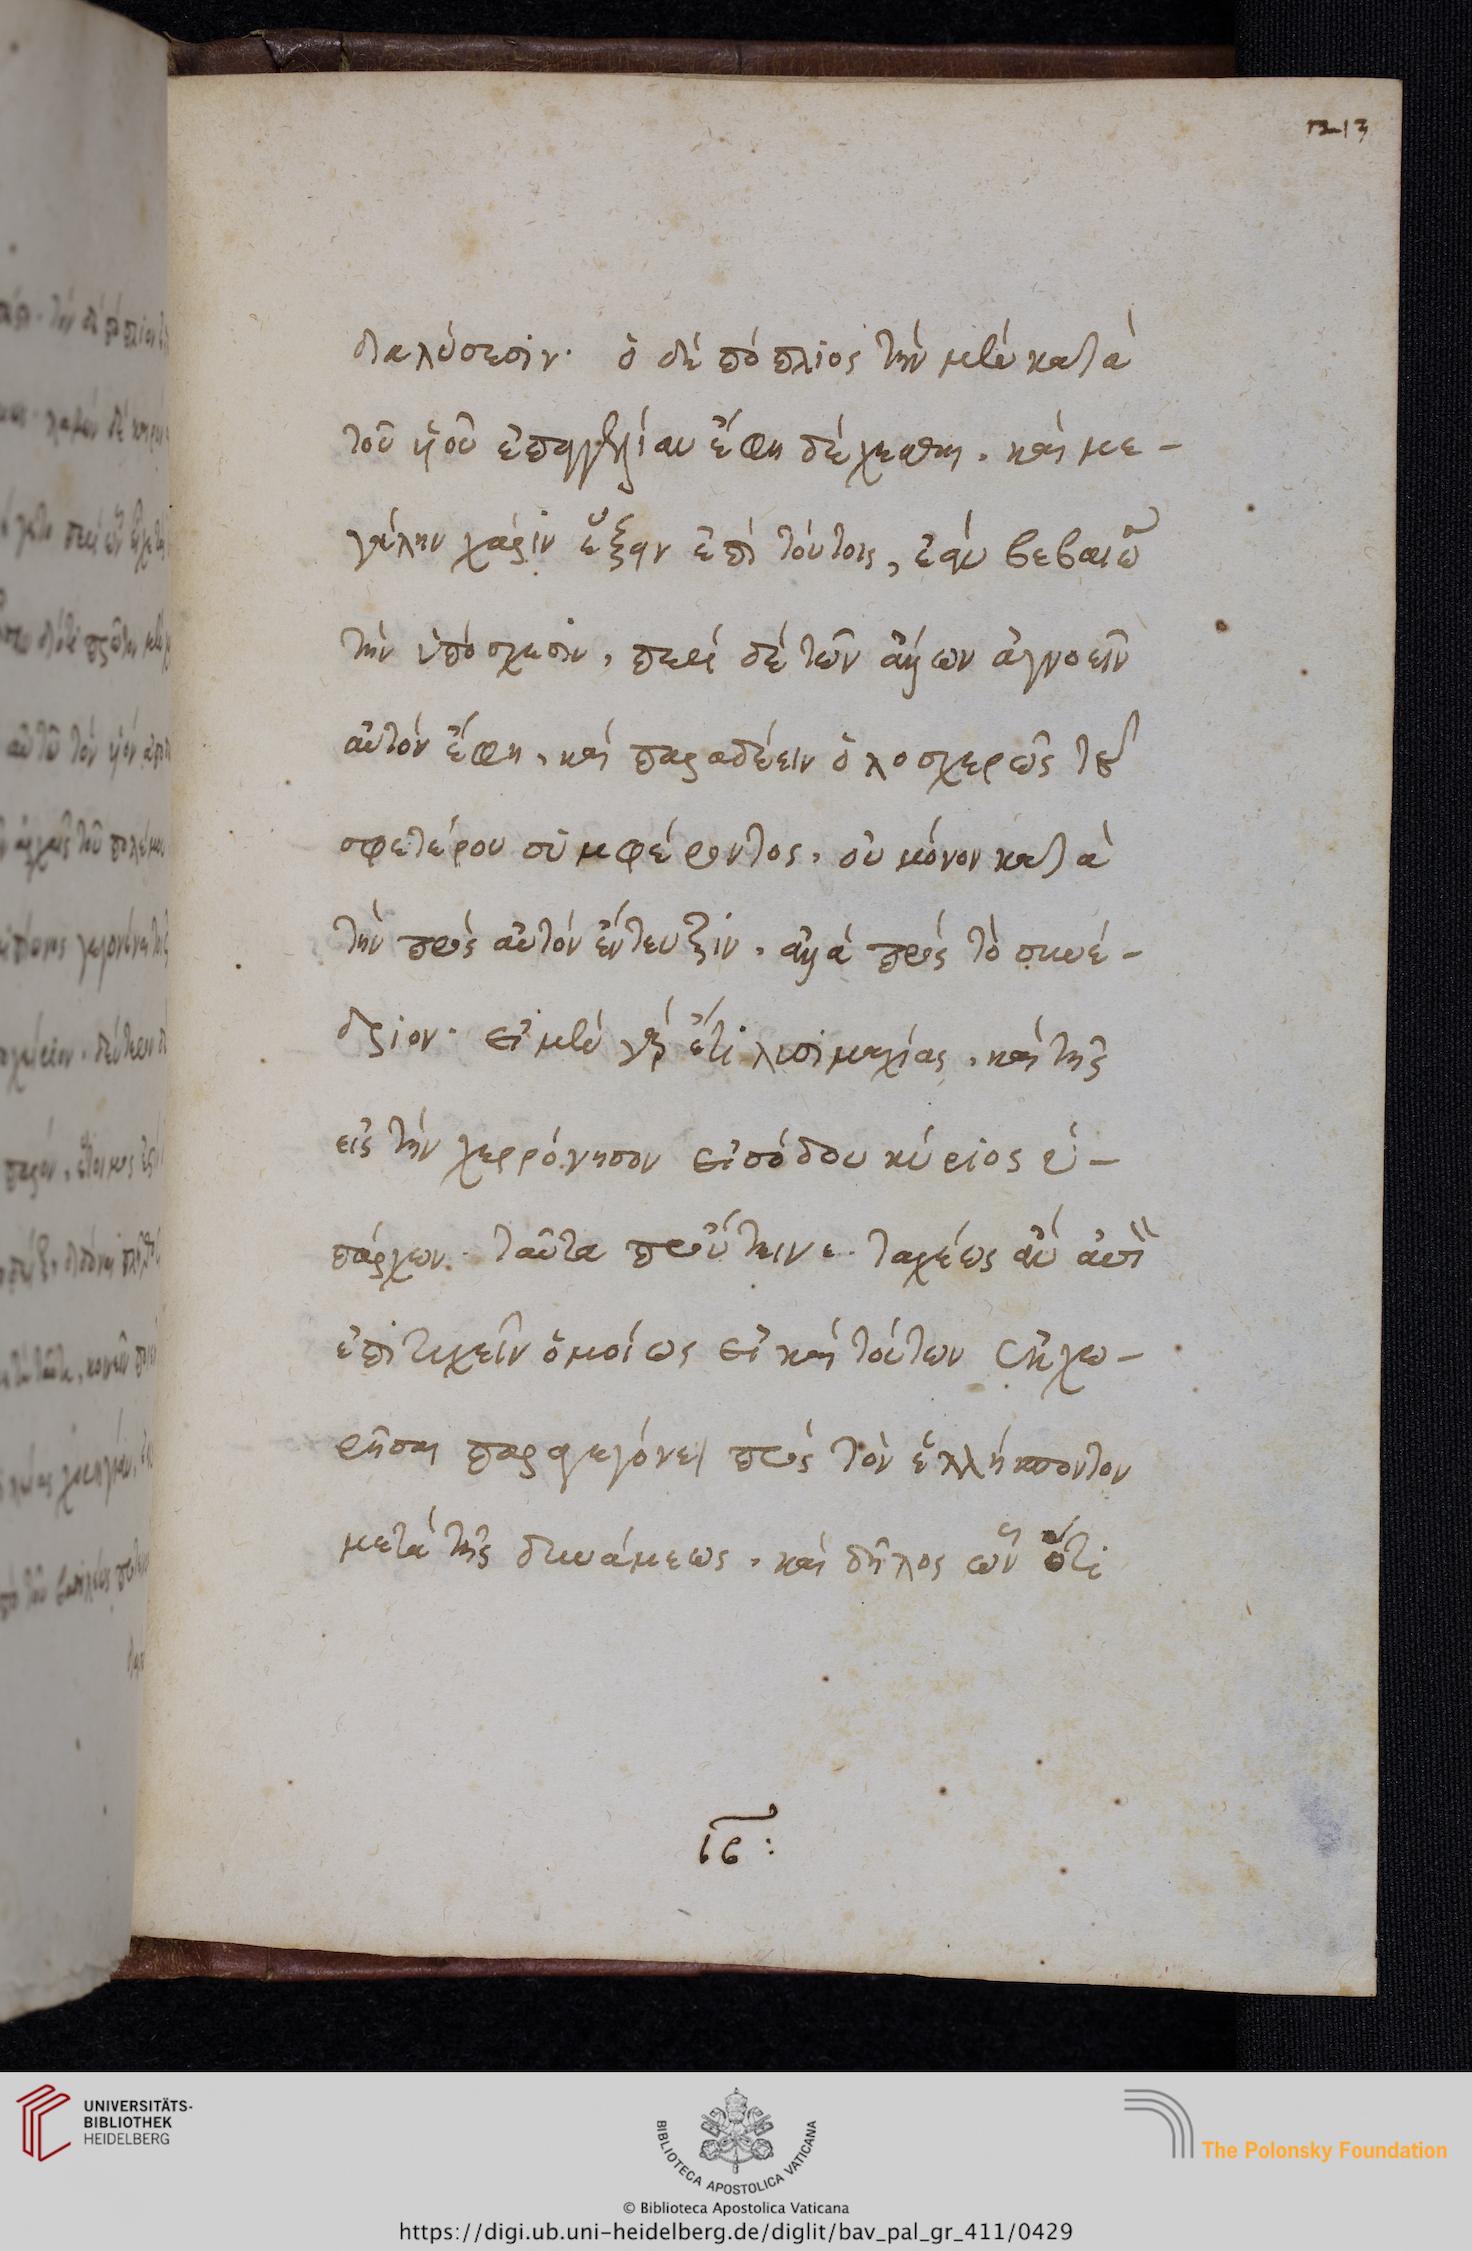 213
διαλύσεσιν· ὁ δὲ πόπλιος τὴν μὲν κατὰ
τοῦ ὑοῦ ἐπαγγελίαν ἔφη δέχεσθαι. καὶ με-
γάλην χάριν ἕξειν ἐπὶ τούτοις, ἐὰν βεβαιοῖ
τὴν ὑπόσχεσιν, περὶ δὲ τῶν ἄλλων ἀγνοεῖν
αὐτὸν ἔφη, καὶ παραδέειν ὁλοσχερῶς τοῦ
σφετέρου συμφέροντος, οὐ μόνον κατὰ
τὴν πρὸς αὐτὸν ἔντευξιν, ἀλλὰ πρὸς τὸ συνέ-
δριον· εἰ μὲν γὰρ ἔτι λυσιμαχίας, καὶ τῆς
εἰς τὴν χερρόνησον εἰσόδου κύριος ὑ-
πάρχων. ταῦτα προύτεινε. ταχέως ἂν αὐτὸν
ἐπιτυχεῖν ὁμοίως εἰ καὶ τούτων ἐκχω-
ρῆσαι παραγεγόνει πρὸς τὸν ἑλλήσποντον
μετὰ τῆς δυνάμεως, καὶ δῆλος ὢν ὅτι
ιϛ:
UNIVERSITÄTS-
BIBLIOTHEK
HEIDELBERG
BIBLIOTECA APOSTOLICA VATICANA
© Biblioteca Apostolica Vaticana
The Polonsky Foundation
https://digi.ub.uni-heidelberg.de/diglit/bav_pal_gr_411/0429